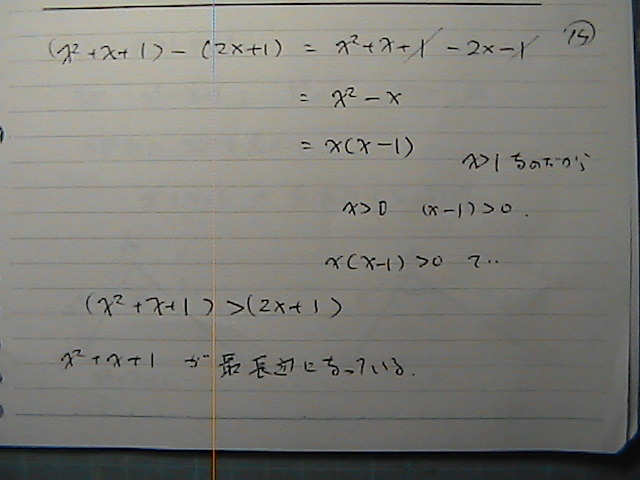 (x²+x+1)-(2x+1) = x²+x+1-2x-1 ⑮
= x²-x
= x(x-1)
x>1 なのだから
x>0 (x-1)>0.
x(x-1)>0 で..
(x²+x+1)>(2x+1)
x²+x+1 が最長辺になっている.